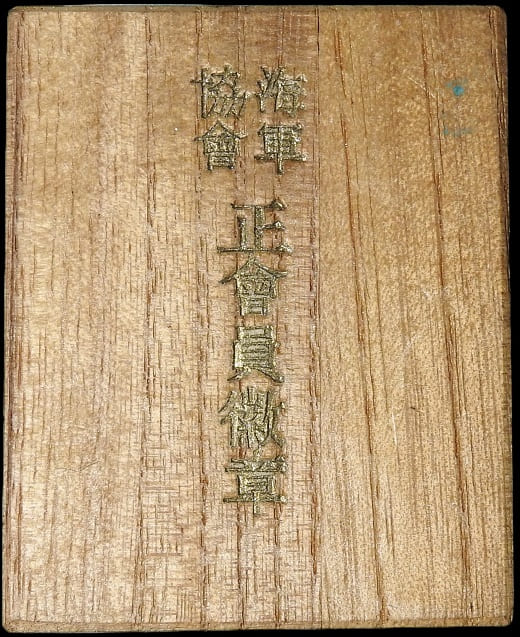 海軍
協會
正會員徽章